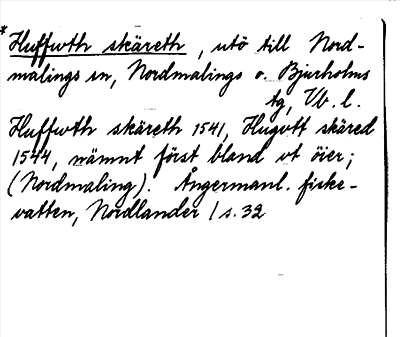 *Huffwth skäreth, utö till Nord-
malings sn, Nordmalings o. Bjurholms
tg, Vb. l.
Huffwth skäreth 1541, Hugvtt skäred
1544, nämnt först bland vt öier;
(Nordmaling). Ångermanl. fiske-
vatten, Nordlander / s. 32